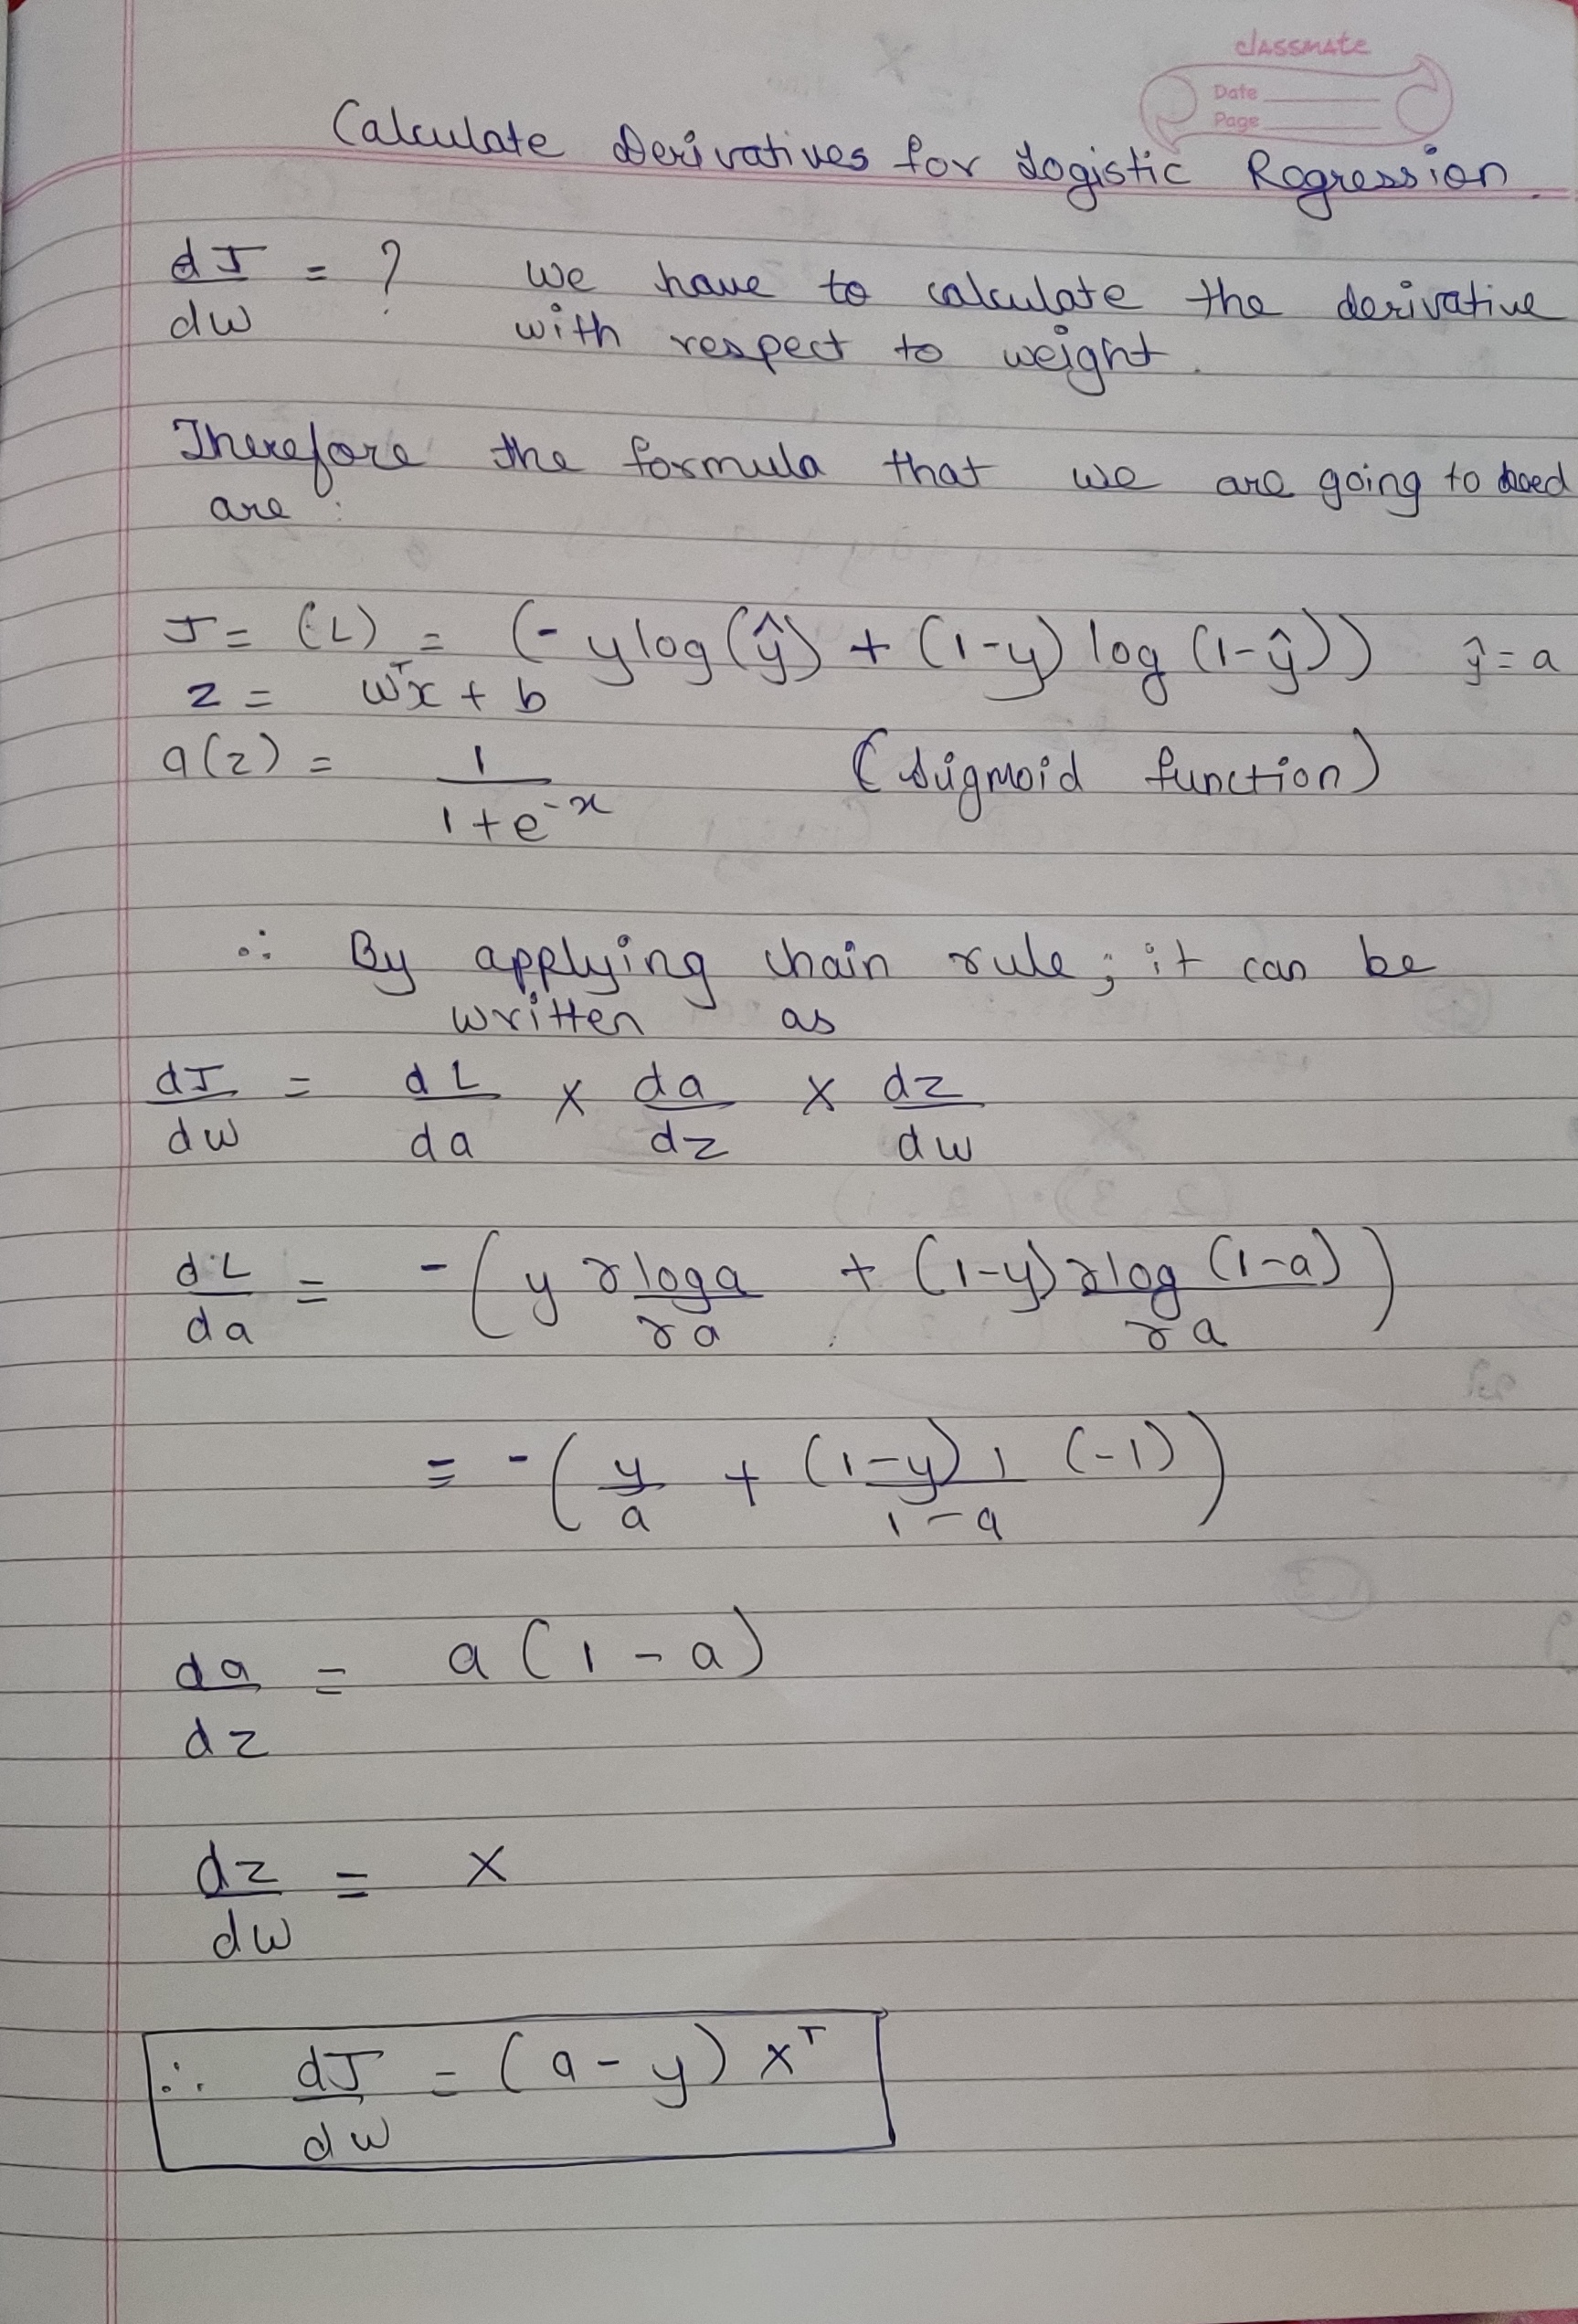 classmate
Date
Page
Calculate Derivatives for Logistic Regression.
dJ/dw = ? We have to calculate the derivative
with respect to weight.
Therefore the formula that we are going to
are :
J = (L) = (- y log(ŷ) + (1-y) log (1-ŷ)) ŷ = a
z = wᵀx + b
a(z) = 1/(1+e^-x) (Sigmoid function)
∴ By applying chain rule, it can be
written as
dJ/dw = dL/da × da/dz × dz/dw
dL/da = -(y ∂log a/∂a + (1-y) ∂log (1-a)/∂a)
= -(y/a + (1-y) 1/(1-a) (-1))
da/dz = a(1-a)
dz/dw = X
∴ dJ/dw = (a-y) Xᵀ